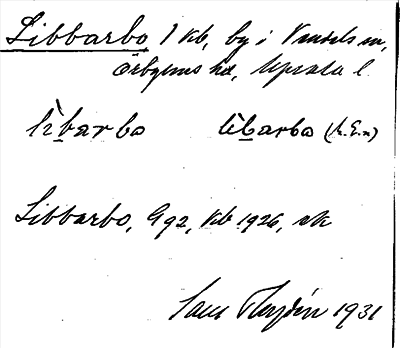 Libbarbo 1 kb, by i Vendels sn,
Örbyhus hd, Uppsala l.
lìbarbo lìbarbo (h.E.n)
Libbarbo, G 92, kb 1926, ek
Sam Flodin 1931